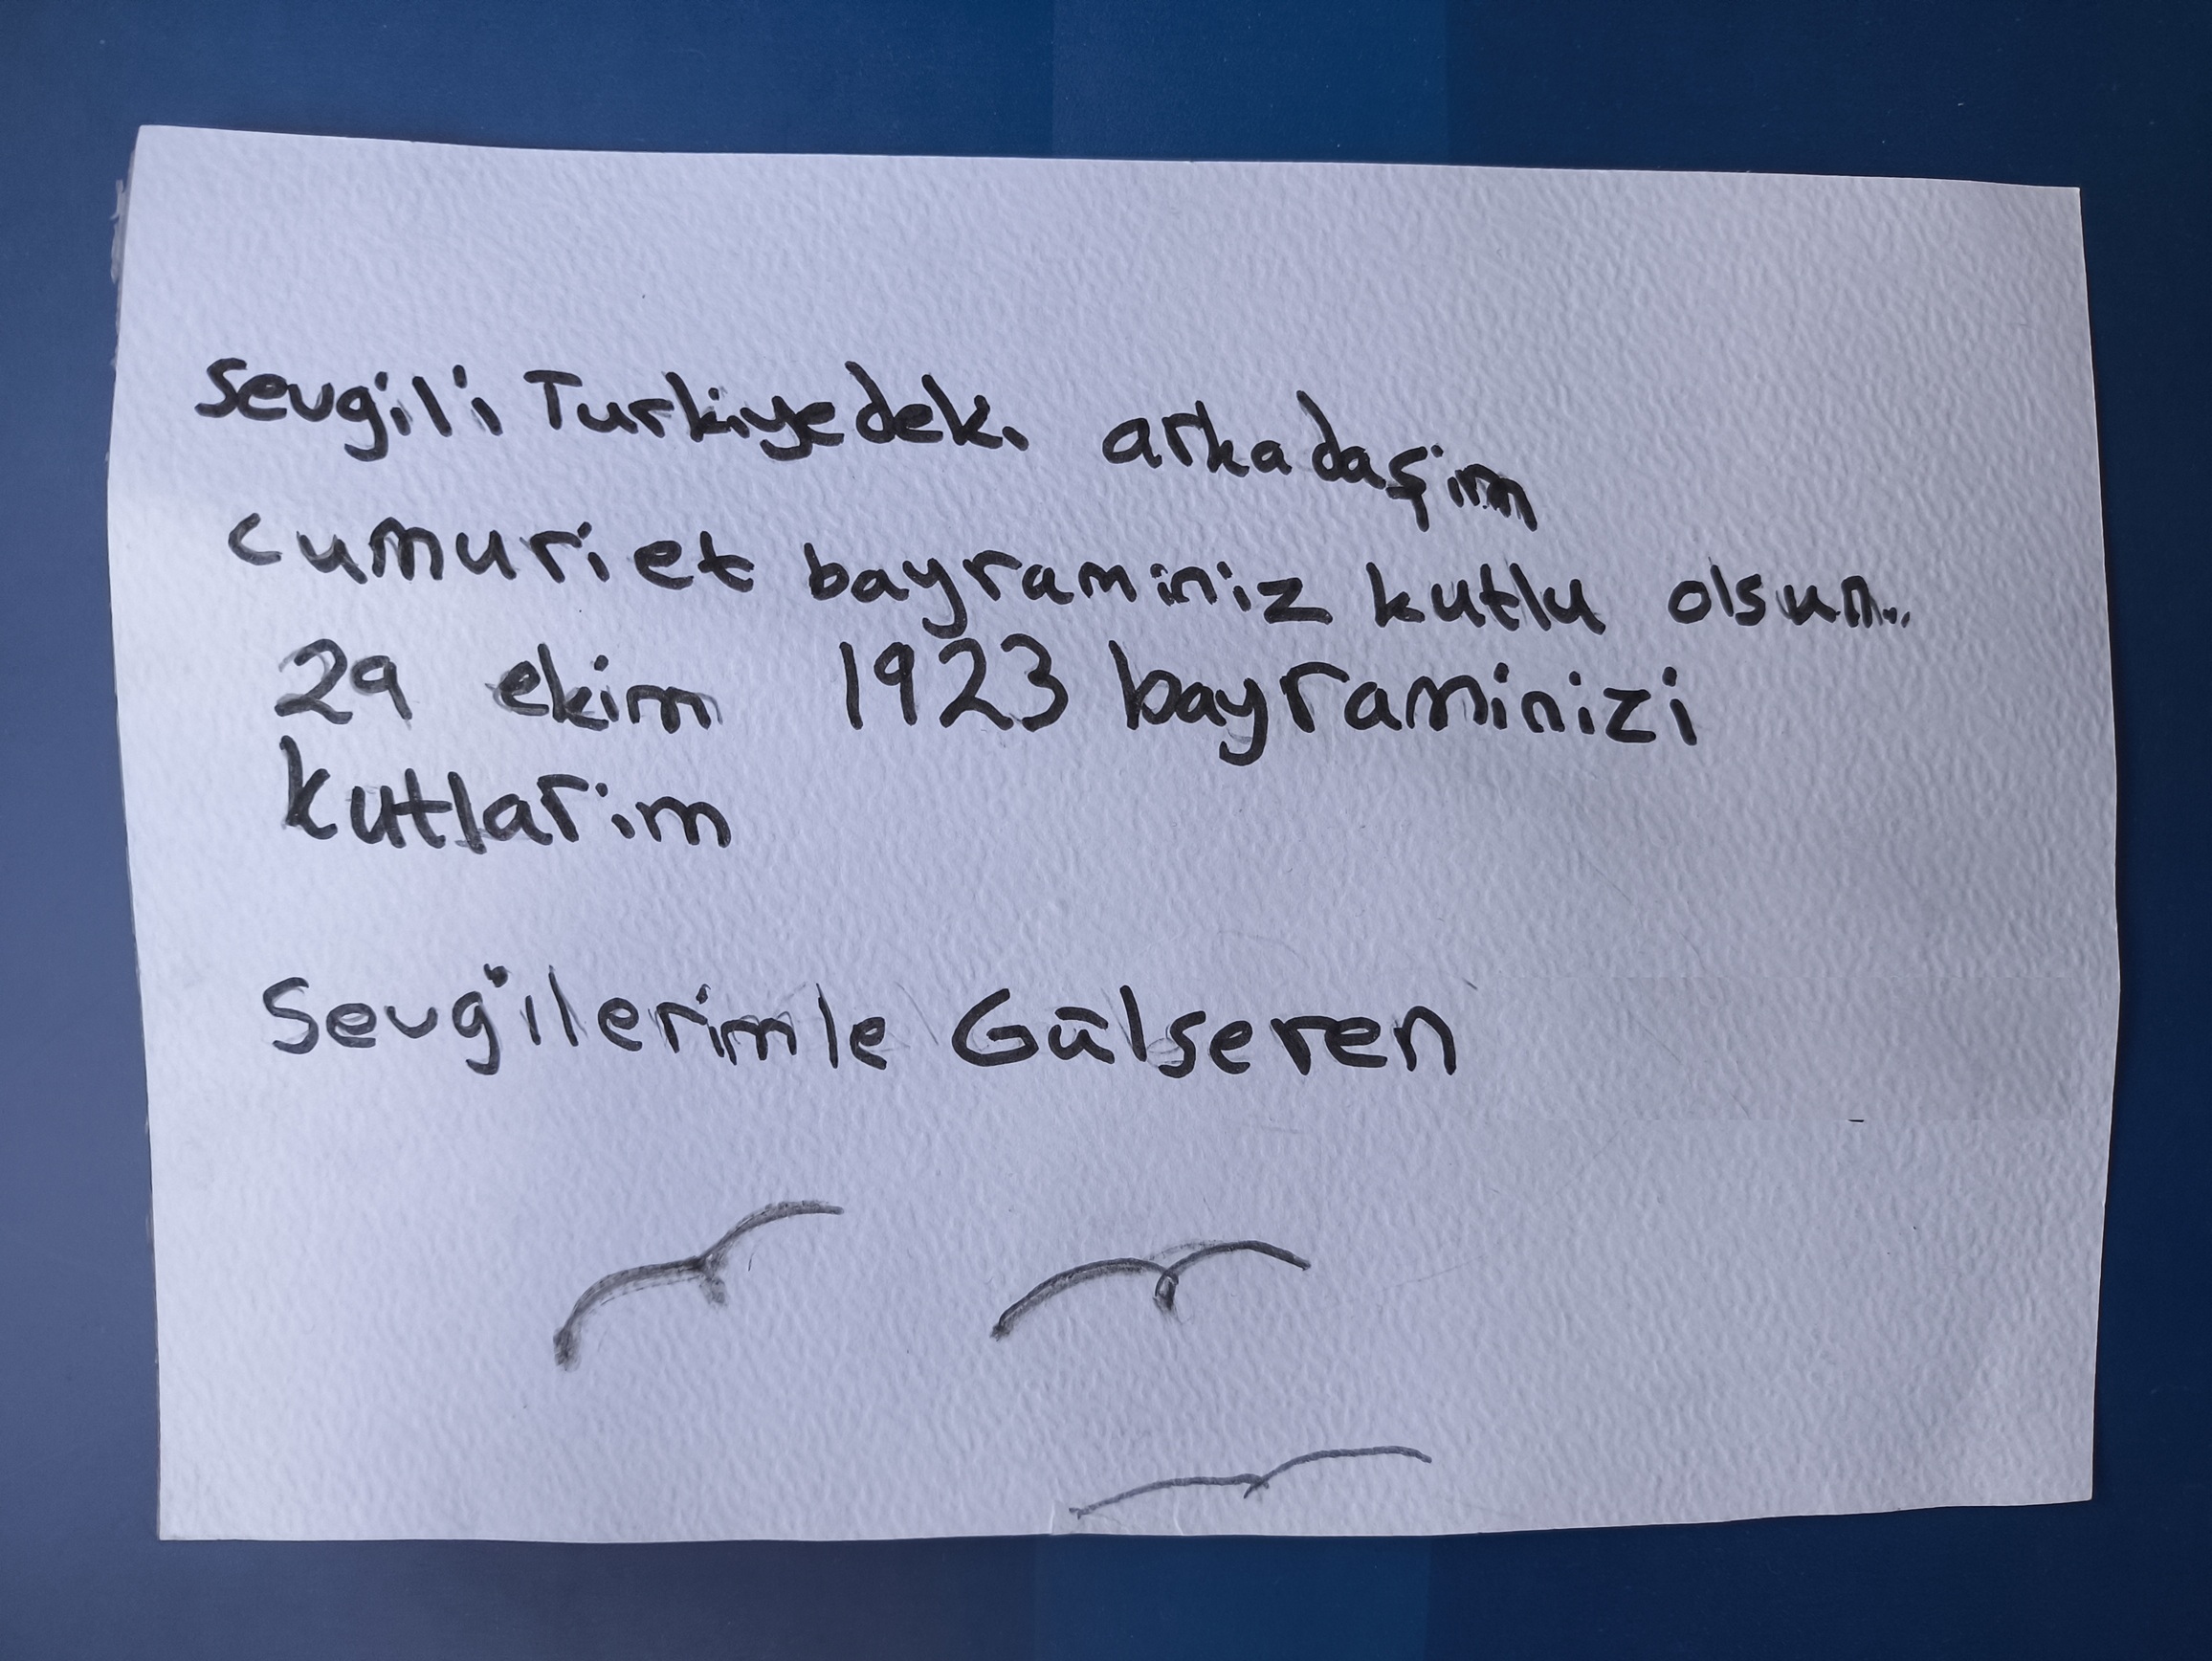 Sevgili Turkiyedeki arkadaşim
cumuriet bayraminiz kutlu olsun...
29 ekim 1923 bayraminizi
kutlarim
Sevgilerimle Gülseren